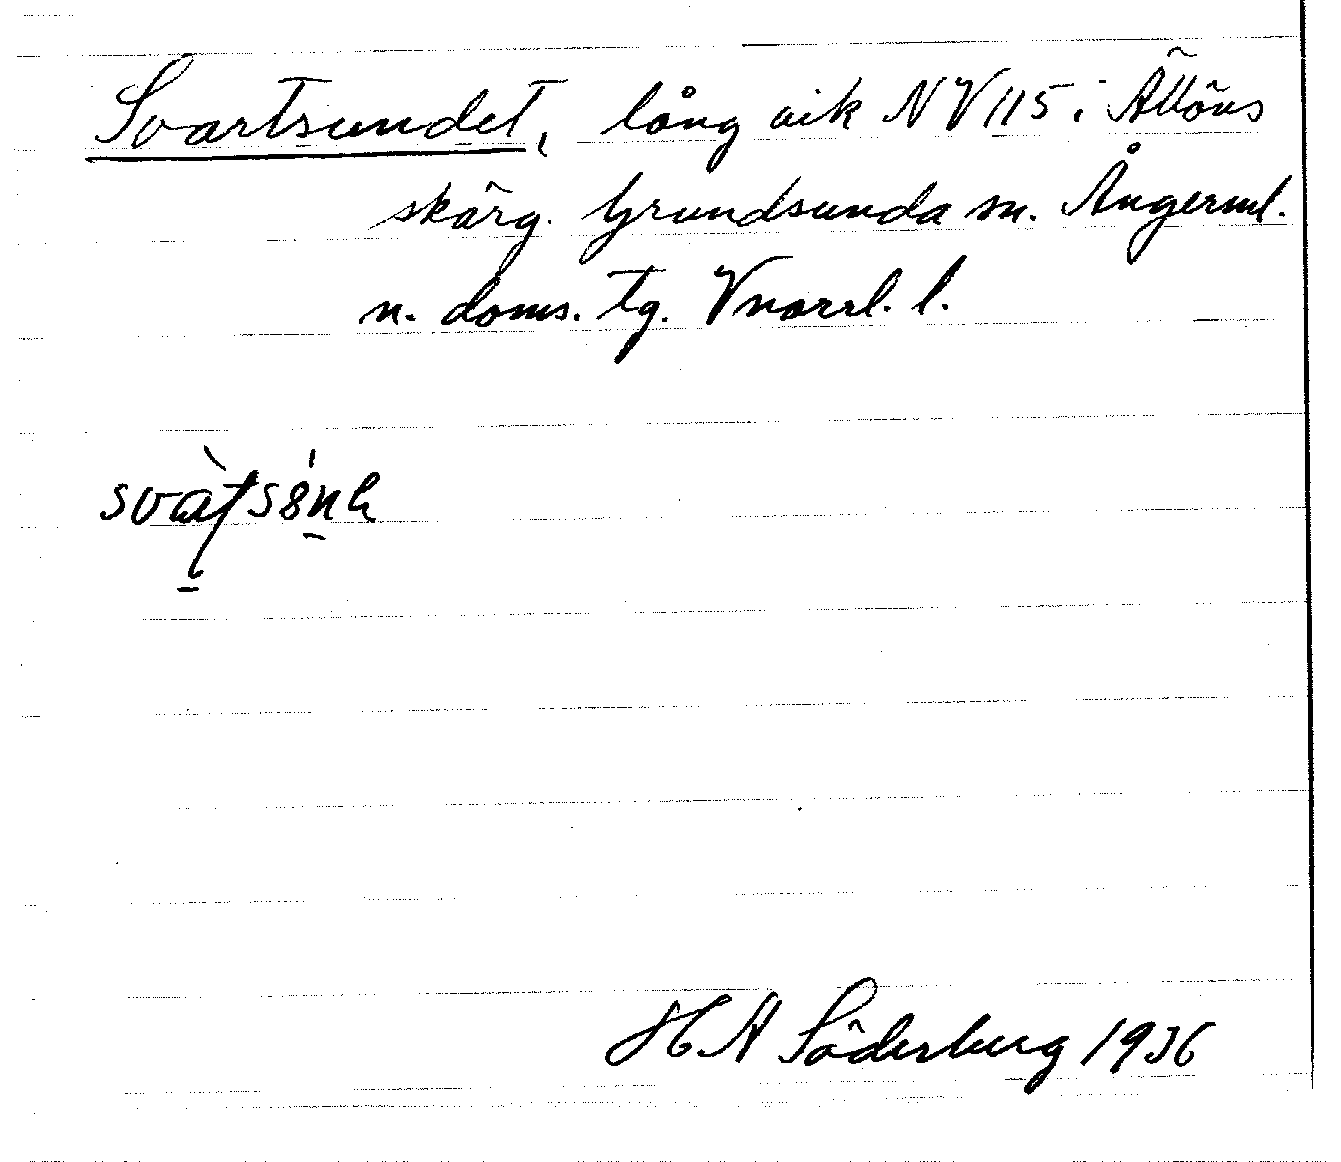 Svartsundet, lång vik NV 115 i Ällöns
skärg. Grundsunda sn. Ångerml.
n. doms. tg. Vnorrl. l.
H A Söderberg 1936